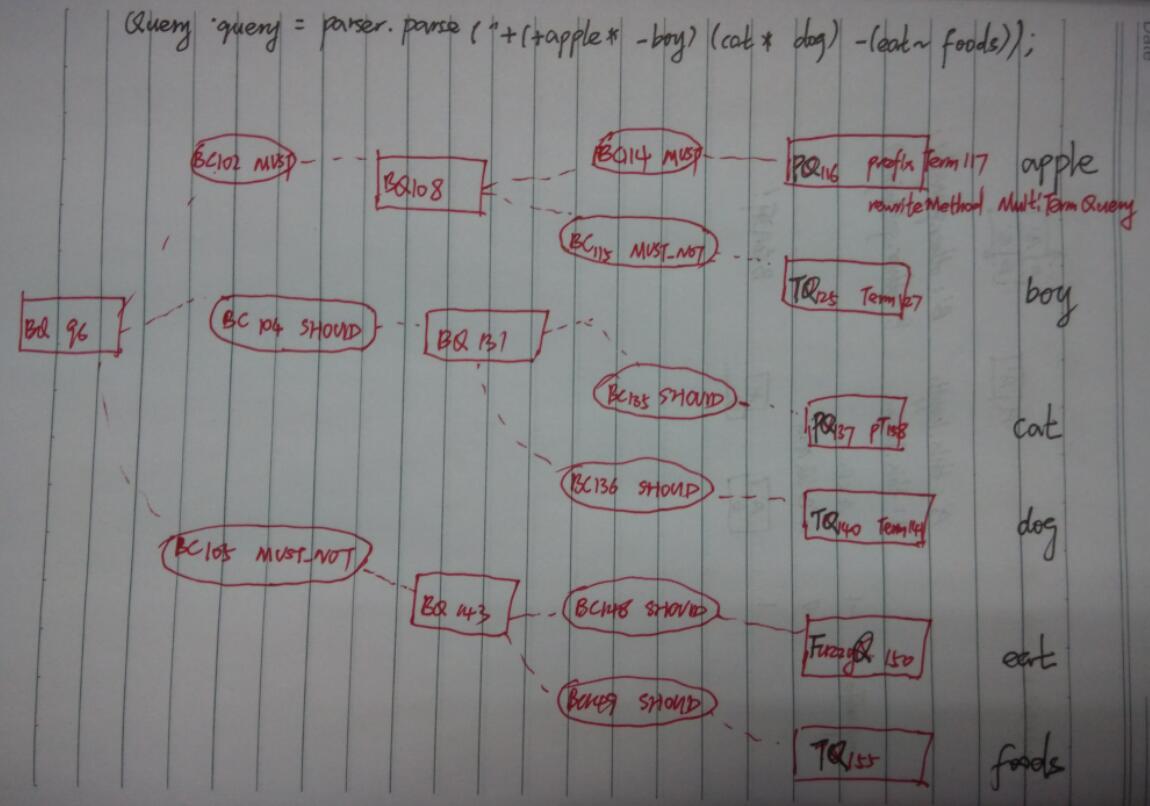 Query query = parser.parse ( "+(+apple* -boy) (cat* dog) -(eat~ foods));
BC102 MUST
BQ108
BQ114 MUST
PQ116 prefix Term117
apple
rewriteMethod MultiTermQuery
BC115 MUST_NOT
TQ125 Term127
boy
BQ 96
BC 104 SHOULD
BQ 131
BC135 SHOULD
PQ137 PT138
cat
BC136 SHOULD
TQ140 Term141
dog
BC105 MUST_NOT
BQ 143
BC148 SHOULD
FuzzyQ 150
eat
BC149 SHOULD
TQ155
foods